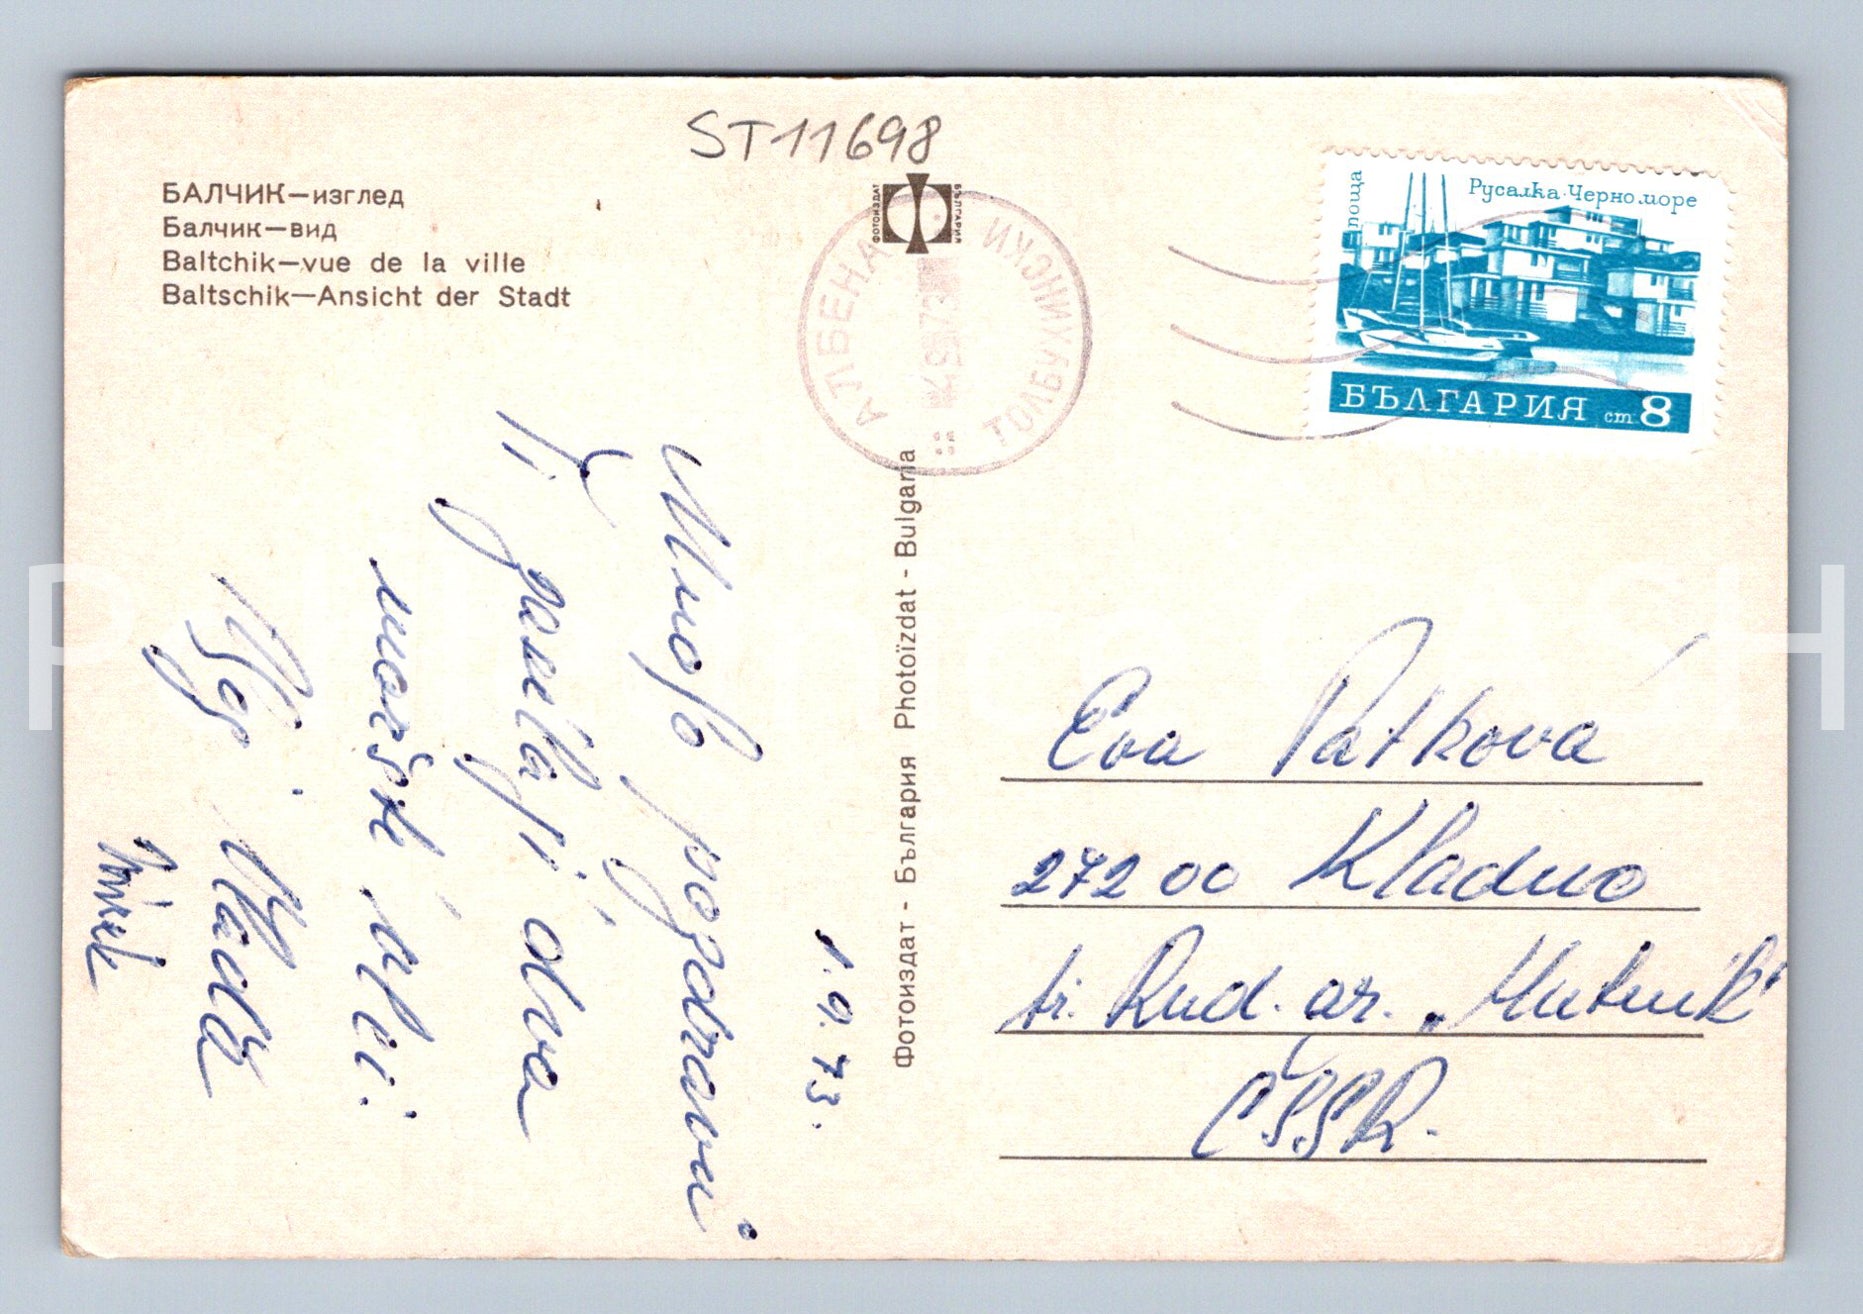 ST11698
БАЛЧИК—изглед
Балчик—вид
Baltchik—vue de la ville
Baltschik—Ansicht der Stadt
ФОТОИЗДАТ
БЪЛГАРИЯ
АЛБЕНА
ТОЛБУХИНСКИ
поща
Русалка·Черно море
БЪЛГАРИЯ ст. 8
1. 9. 73.
Mnoho pozdravů
Ti posílají dva
mořští vlci
Vláďa
Mirek
Фотоиздат - България Photoïzdat - Bulgaria
Eva Patková
272 00 Kladno
tř. Rud. ar. „Hutník"
ČSSR.